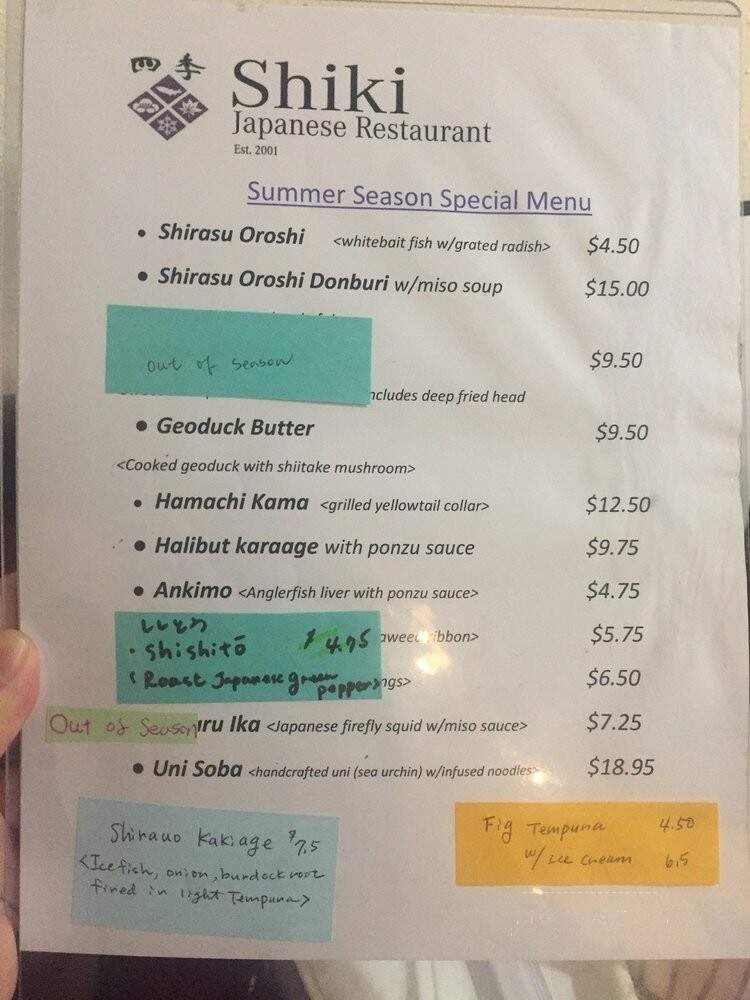 四季
Shiki
Japanese Restaurant
Est. 2001
Summer Season Special Menu
• Shirasu Oroshi <whitebait fish w/grated radish> $4.50
• Shirasu Oroshi Donburi w/miso soup $15.00
out of season $9.50
ncludes deep fried head
• Geoduck Butter $9.50
<Cooked geoduck with shiitake mushroom>
• Hamachi Kama <grilled yellowtail collar> $12.50
• Halibut karaage with ponzu sauce $9.75
• Ankimo <Anglerfish liver with ponzu sauce> $4.75
ししとう
• shishitō $4.95 aweed ribbon> $5.75
(Roast Japanese green pepper) ngs> $6.50
Out of Season uru Ika <Japanese firefly squid w/miso sauce> $7.25
• Uni Soba <handcrafted uni (sea urchin) w/infused noodles> $18.95
Shirauo Kakiage $7.5
<Icefish, onion, burdock root
fired in light Tempura>
Fig Tempura 4.50
w/ ice cream 6.5